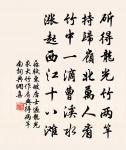 斫得龍光竹兩竿
持歸嶺北萬人看
竹中一滴曹溪水
漲起西江十八灘
蘇軾東坡居士過龍光
求大竹作肩輿得兩竿
南 詞典網集